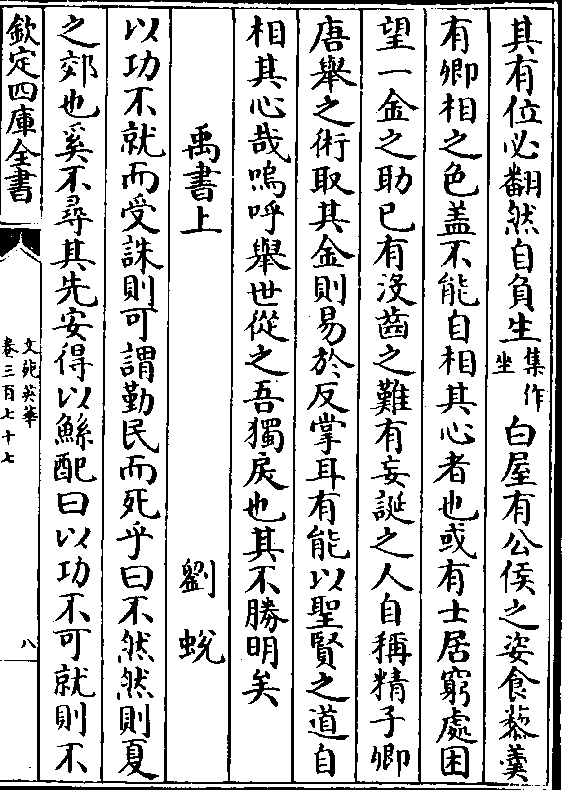 其有位必翻然自負生集作坐白屋有公侯之姿食藜羹
有卿相之色蓋不能自相其心者也或有士居窮處困
望一金之助已有沒齒之難有妄誕之人自稱精子卿
唐舉之術取其金則易於反掌耳有能以聖賢之道自
相其心哉嗚呼舉世從之吾獨戾也其不勝明矣
禹書上 劉蛻
以功不就而受誅則可謂勤民而死乎曰不然然則夏
之郊也奚不尋其先安得以鯀配曰以功不可就則不
欽定四庫全書
文苑英華
卷三百七十七
八